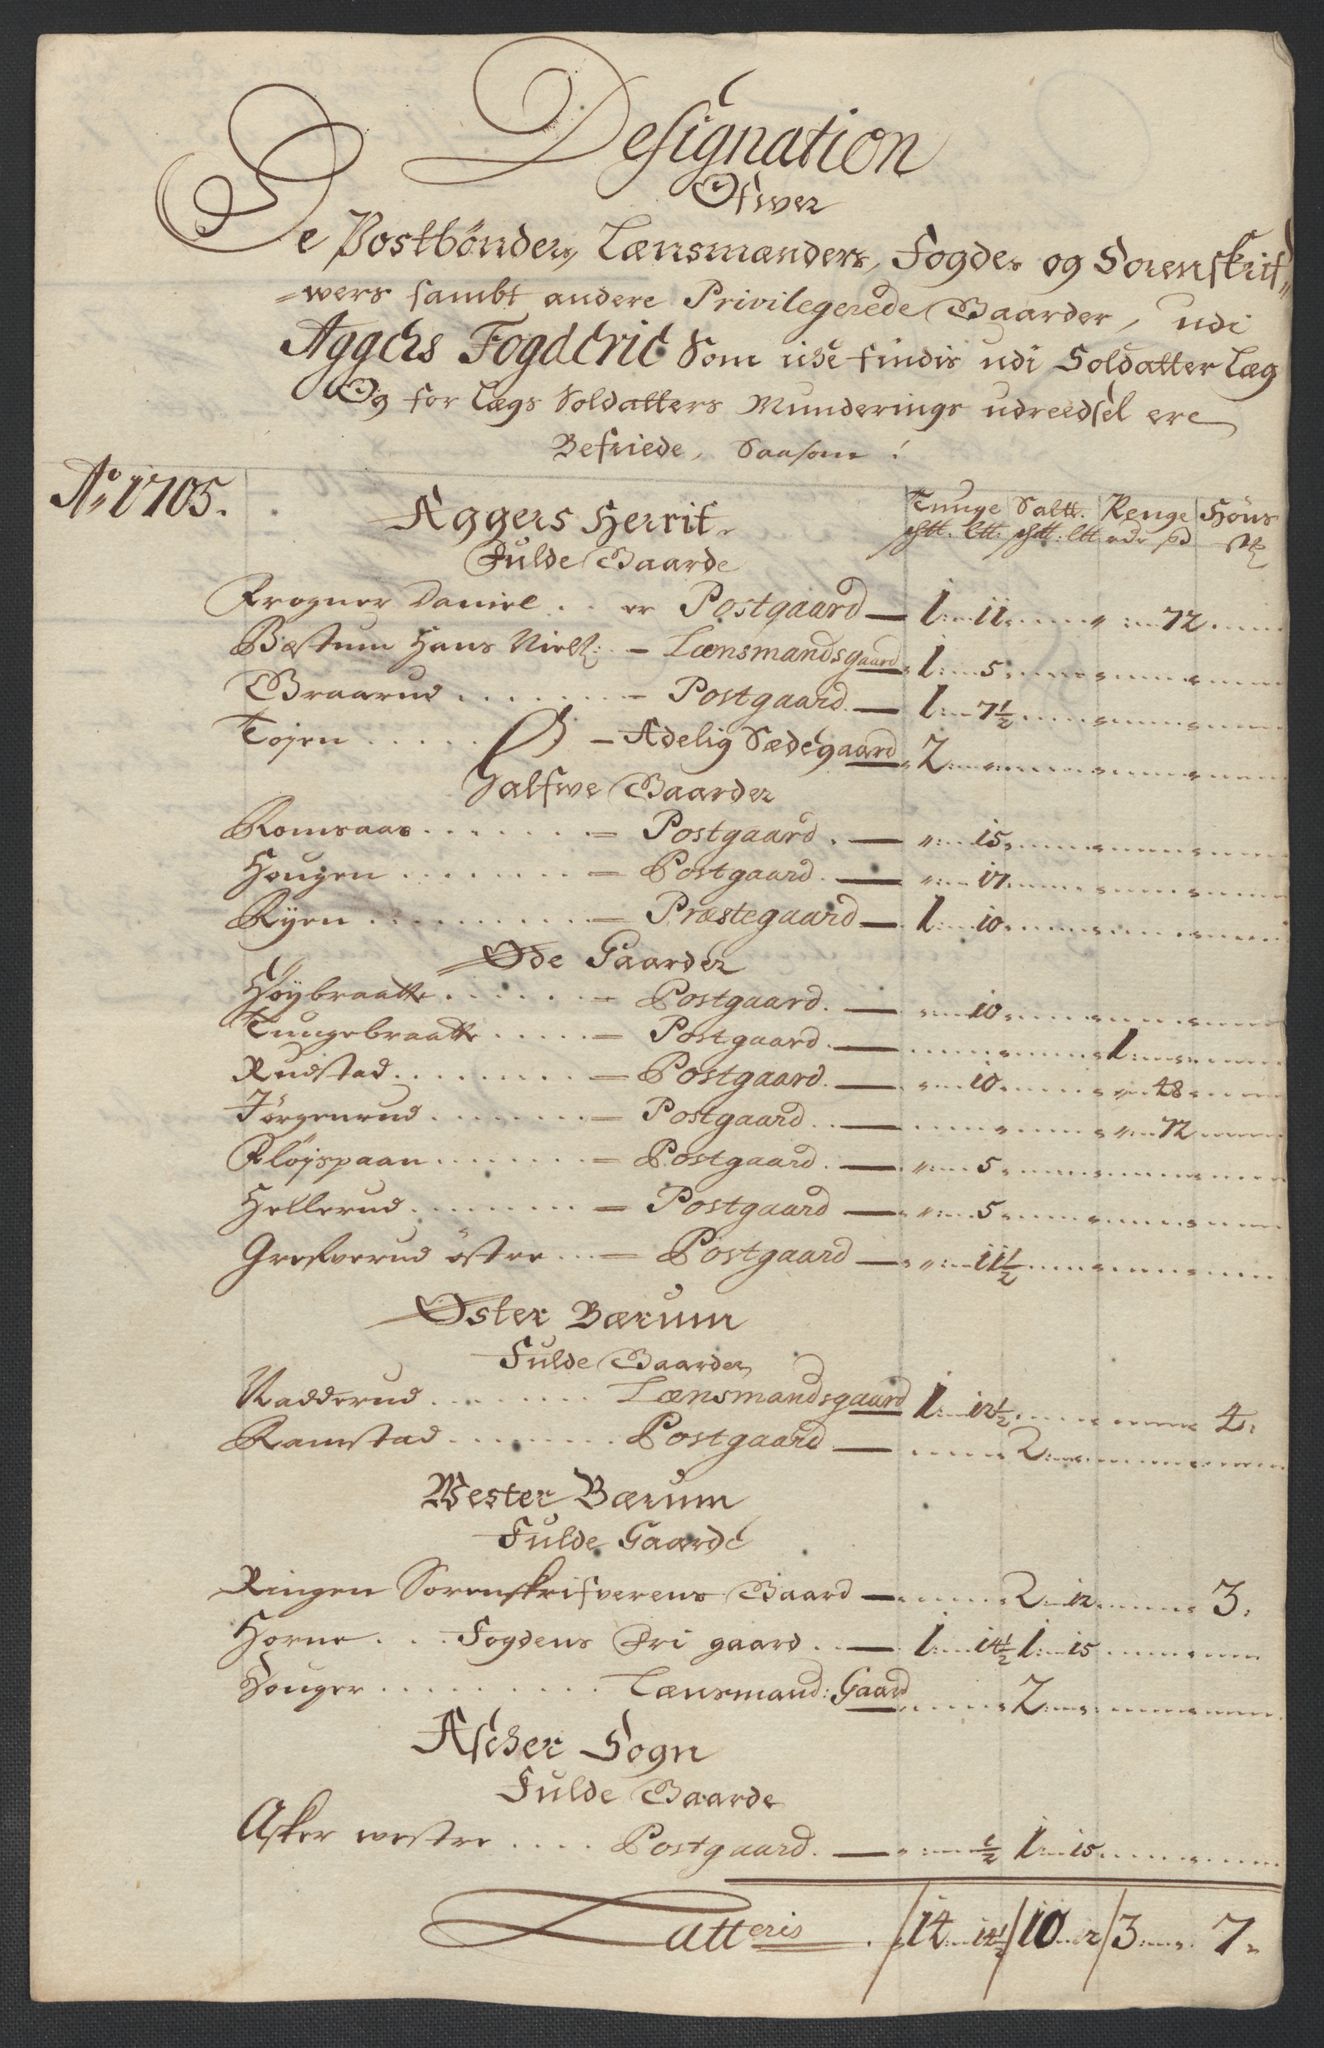 Designation
Ofwer
De Postbønder, Lænsmænders, Fogdes og Sorenskrif
wers sambt andere Privilegerede Gaarder, udi
Aggers Fogderie Som icke findis udi Soldatter Læg
Og for Lægs Soldatters Munderings udreedsel ere
Befriede, Saasom:
Ao 1705.
Aggers Herrit Tunge Saltt. Penge Høns
Fulde Gaarde
Frogner Daniel . . er Postgaard — 1 11 " 72
Bæstum Hans Niels: — Lænsmandsgaard 1 5
Braarud — Postgaard — 1 7½
Tøjen — Adelig Sædegaard 2
Halfwe Gaarder
Romsaas — Postgaard — " 15
Hougen — Postgaard — " 17
Ryen — Præstegaard — 1 10
Øde Gaarder
Høybraatte — Postgaard — " 10
Tungebraatte — Postgaard — 1
Rudstad — Postgaard — " 10 " 48
Jørgenrud — Postgaard — " 72
Fløyspaan — Postgaard — " 5
Hellerud — Postgaard — " 5
Grefverud østre — Postgaard — " 11½
Øster Bærum
Fulde Gaarder
Nadderud Lænsmandsgaard 1 12½ 4
Ramstad Postgaard — 2
Wester Bærum
Fulde Gaarde
Ringen Sorenskrifverens Gaard — 2 12 3
Horne Fogdens Fri gaard — 1 14½ 1 15
Houger Lænsmand: Gaard 2
Ascher Sogn
Fulde Gaarde
Asker westre Postgaard — " ½ 1 15
Latteris 14 14½ 10 2 3 7